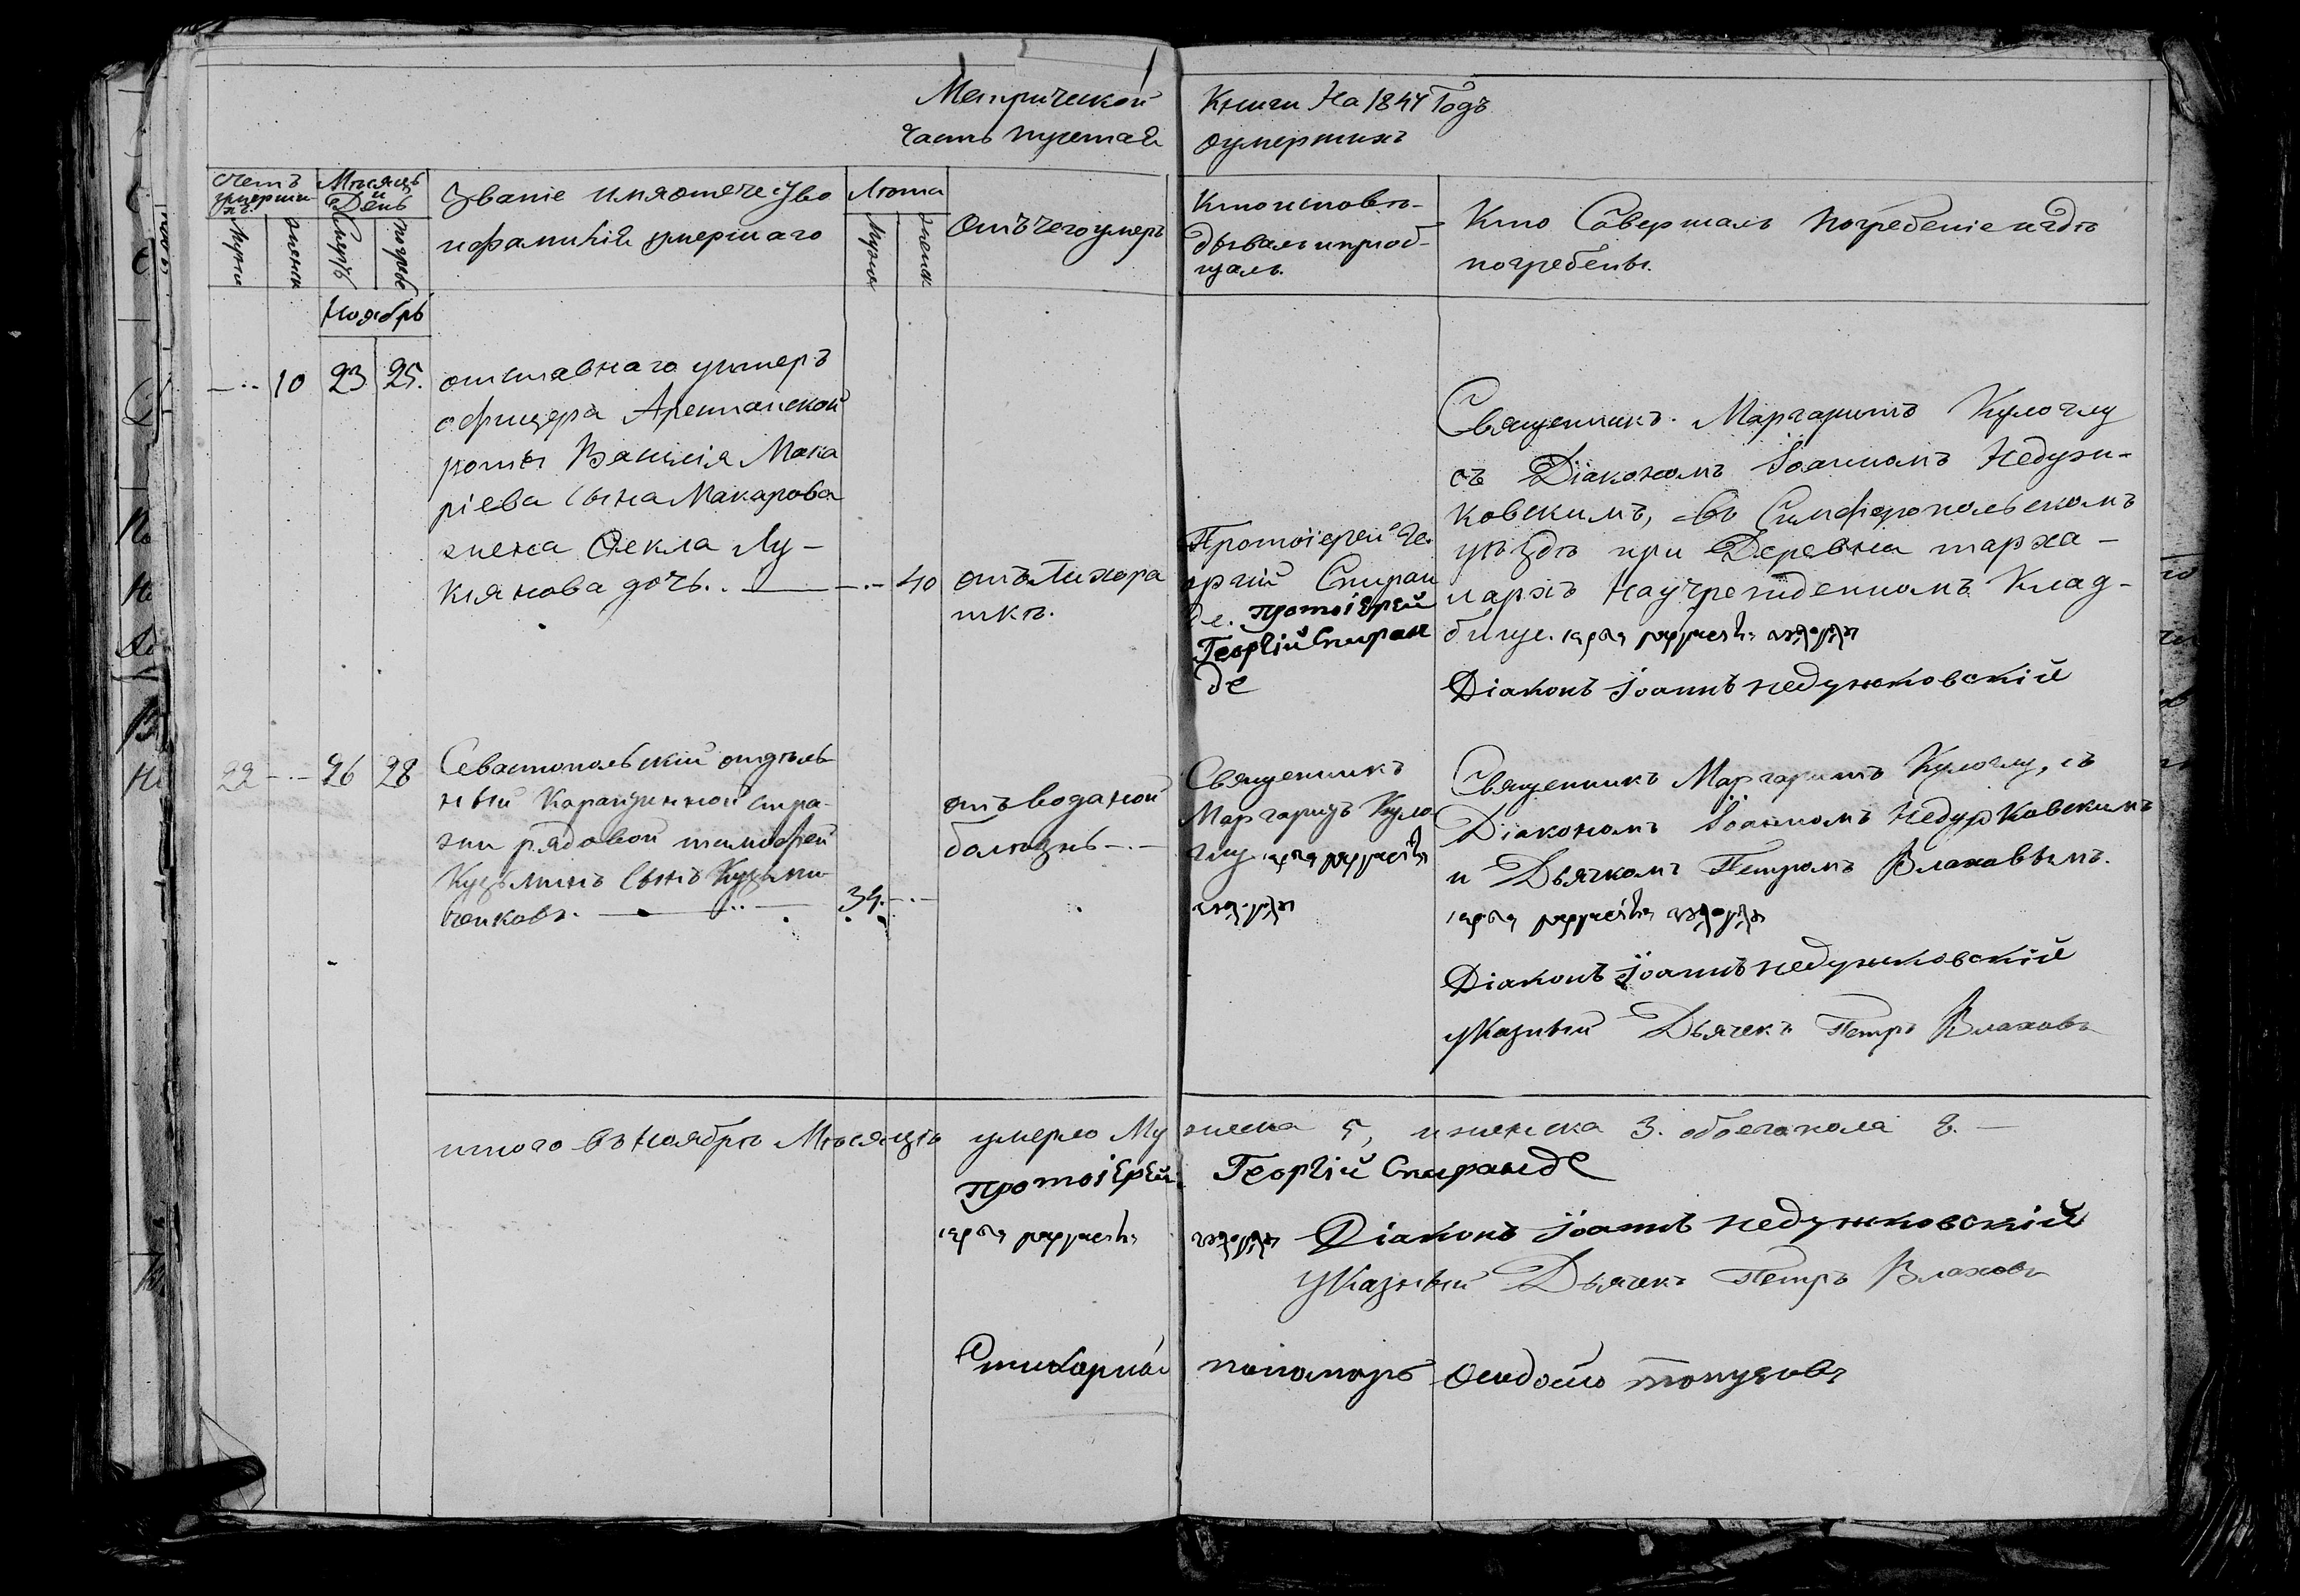 Метрической Книги На 1844 Годъ
Часть третая оумершихъ
Счетъ умершихъ
Мѣсяцъ и День
Званіе имя отечество
и фамилій умершаго
Лѣта
Отъ чего умеръ
Кто исповѣ-
дывалъ и приоб-
щалъ.
Кто Совершалъ Погребеніе и гдѣ
погребены.
Мужи
женск
Умеръ
погреб
Мужа
женск
Ноябрь
10 23 25.
отставнаго унтеръ
офицера Арестанской
роты Василія Мака
ріева сына Макарова
жена Ѳекла Лу-
кіянова дочь.
40
отъ Лихора
тки.
Протоіерей Ге-
оргій Спиран
де. Протоіерей
Георгій Спиран
де
Священникъ Маргаритъ Кулоглу
съ Діакономъ Іоанномъ Недзи-
ковскимъ, въ Симферопольскомъ
уѣздѣ при Деревнѣ тарха-
ларъ На учрежденномъ Клад-
бище.
Діаконъ Іоаннъ недзиковскій
22 26 28
Севастопольскій отдѣль
ный Карантинной стра-
жи рядовой тимофей
Кузьминъ Сынъ Кузьми
ченковъ.
34.
отъ водяной
болѣзнь
Священникъ
Маргаритъ Куло
глу
Священникъ Маргаритъ Кулоглу, съ
Діакономъ Іоанномъ Недзиковскимъ
и Дьячкомъ Петромъ Влаховымъ.
Діаконъ Іоаннъ недзиковскій
Указный Дьячекъ Петръ Влаховъ
итого въ Ноябрѣ Мѣсяцѣ умерло Му жеска 5, и женска 3. обоего пола 8.
Протоіерей Георгій Спиранде
Діаконъ Іоаннъ недзиковскій
Указный Дьячекъ Петръ Влаховъ
Стихарной пономарь